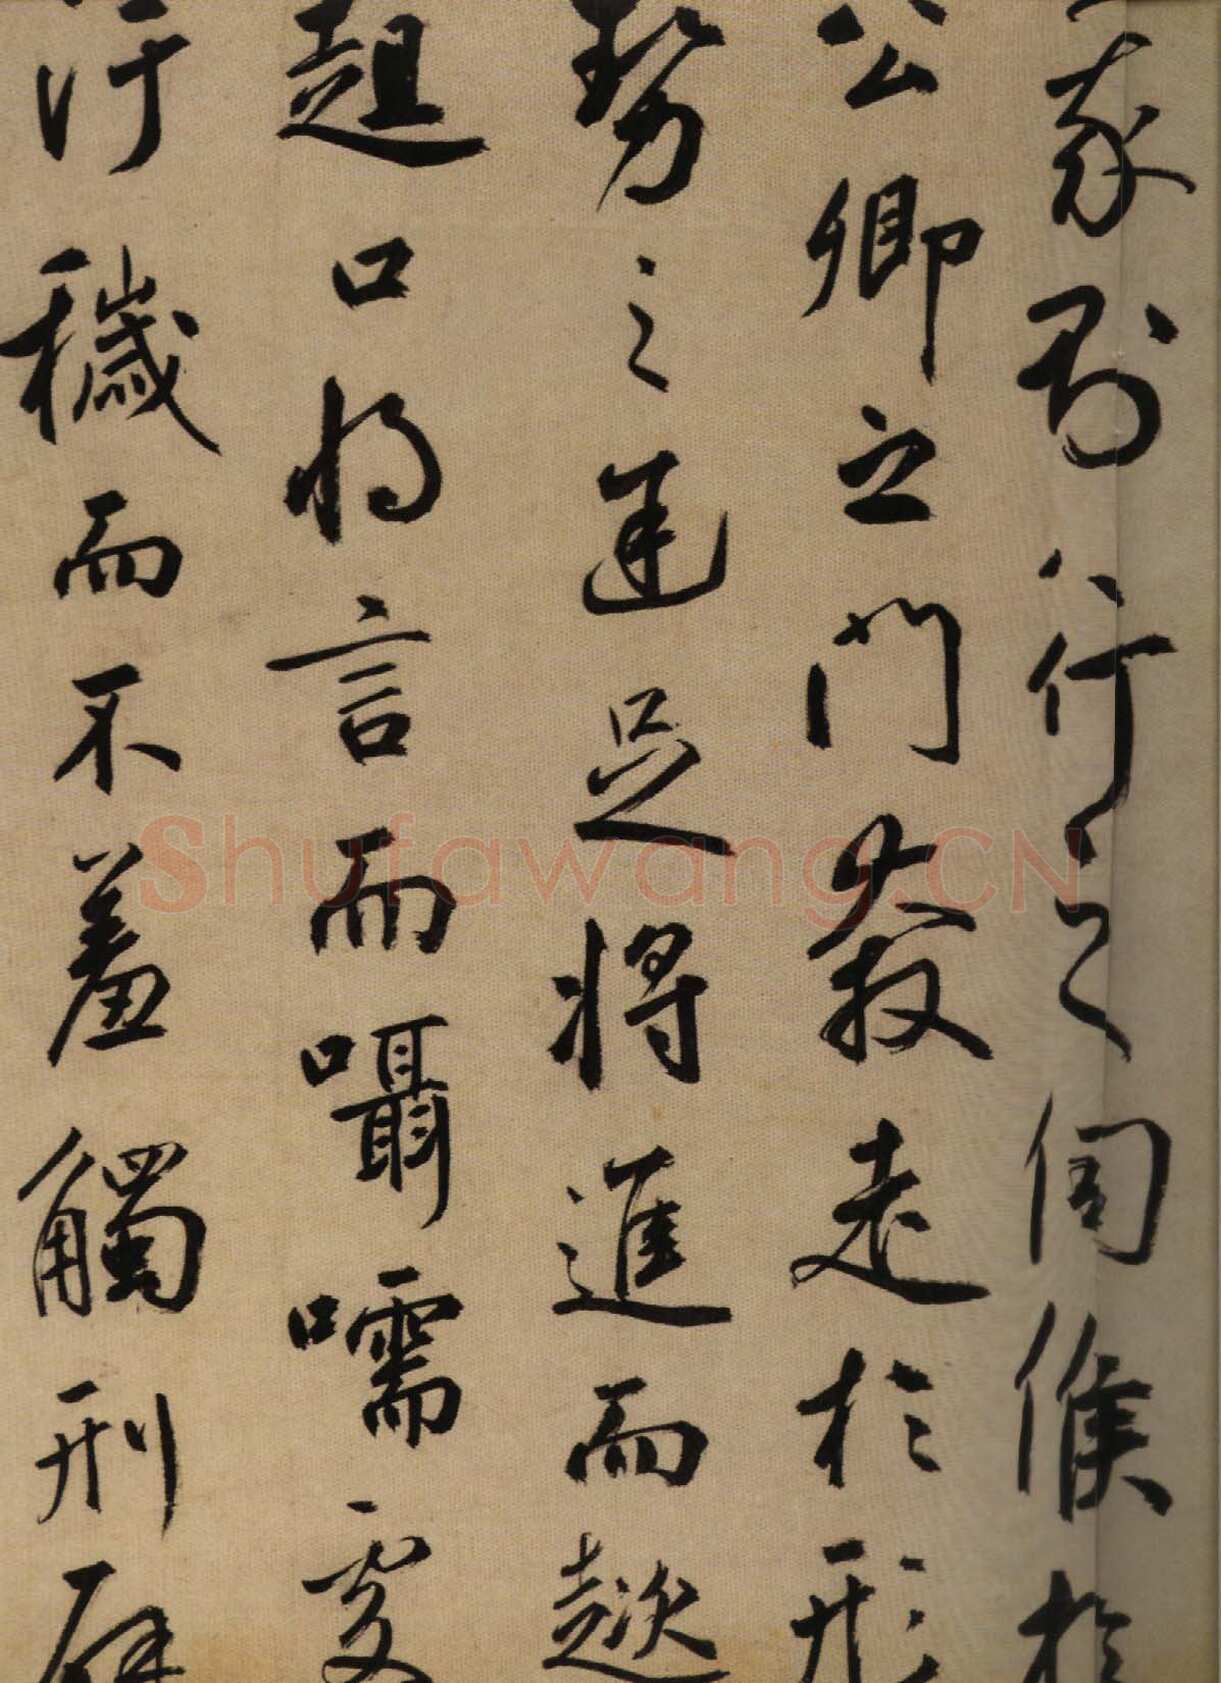 我則行之伺候於
公卿之門發走於形
勢之途足將進而趑
趄口將言而囁嚅處
汙穢而不羞觸刑辟
Shufawang.CN